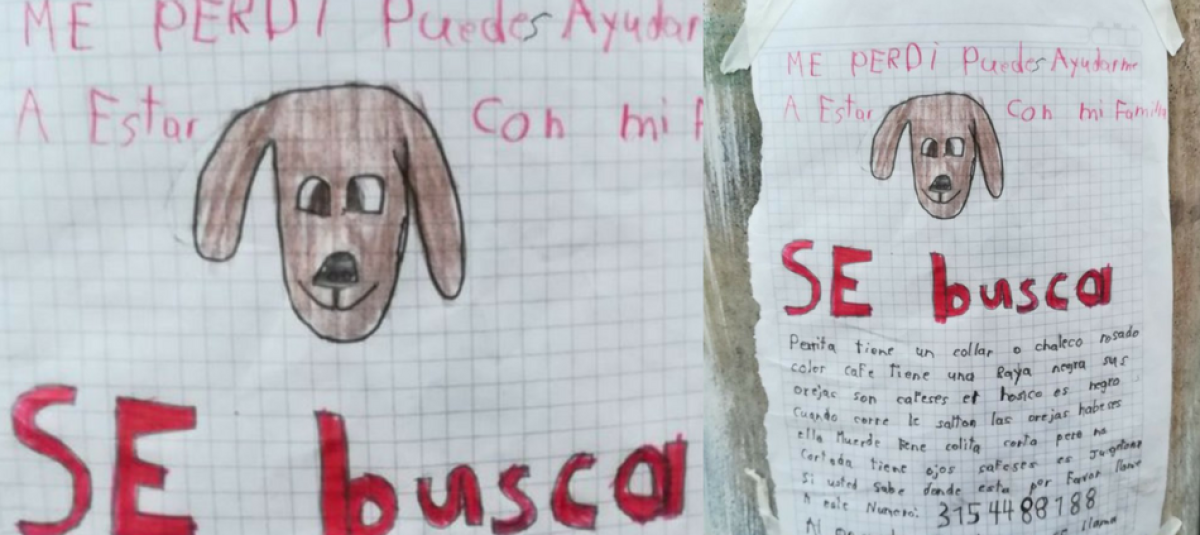 ME PERDi Puedes Ayudar
A Estar Con mi F
SE busca
ME PERDi Puedes Ayudarme
A Estar Con mi Familia
SE busca
Perrita tiene un collar o chaleco rosado
color cafe tiene una Raya negra sus
orejas son cafeses el hosico es negro
Cuando corre le salton las orejas habeses
ella Muerde tiene colita corta pero no
Cortada tiene ojos cafeses es Jugetona
Si usted Sabe donde esta por Favor llame
A este Numero: 3154488188
Al llama